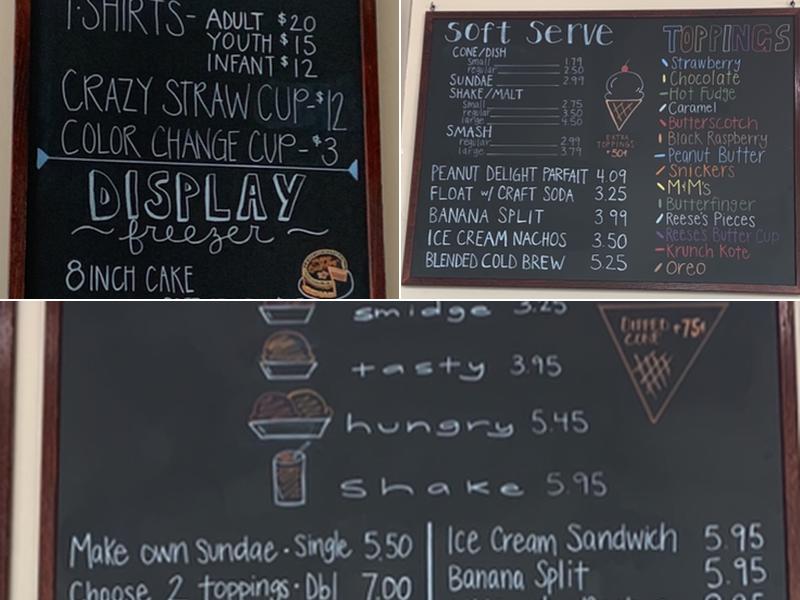 T-SHIRTS- ADULT $20
YOUTH $15
INFANT $12
CRAZY STRAW CUP-$12
COLOR CHANGE CUP-$3
DISPLAY
~ freezer ~
8 INCH CAKE
Soft Serve
CONE/DISH
Small 1.79
regular 2.50
SUNDAE 2.99
SHAKE/MALT
Small 2.75
regular 3.50
large 4.50
SMASH
regular 2.99
large 3.79
EXTRA
TOPPINGS
+50¢
PEANUT DELIGHT PARFAIT 4.09
FLOAT w/ CRAFT SODA 3.25
BANANA SPLIT 3.99
ICE CREAM NACHOS 3.50
BLENDED COLD BREW 5.25
TOPPINGS
Strawberry
Chocolate
Hot Fudge
Caramel
Butterscotch
Black Raspberry
Peanut Butter
Snickers
M&M's
Butterfinger
Reese's Pieces
Reese's Butter Cup
Krunch Kote
Oreo
smidge 3.25
tasty 3.95
hungry 5.45
Shake 5.95
DIPPED
CONE +75¢
Make own Sundae · Single 5.50
Choose 2 toppings · Dbl 7.00
Ice Cream Sandwich 5.95
Banana Split 5.95